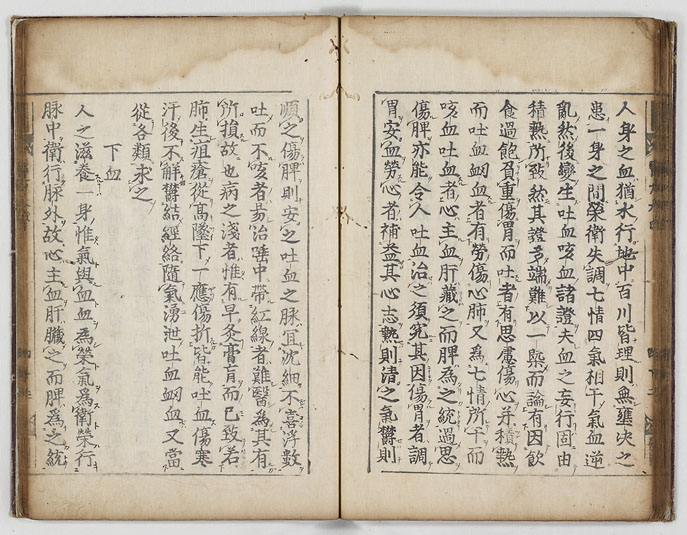 人身之血猶水行地中百川皆理則無壅决之
患一身之間榮衛失調七情四氣相干氣血逆
亂然後變生吐血咳血諸證夫血之妄行固由
積熱所致然其證多端難以一槩而論有因飲
食過飽負重傷胃而吐者有思慮傷心并積熱
而吐血衂血者有勞傷心肺又為七情所干而
咳血吐血者心主血肝藏之而脾為之統過思
傷脾亦能令人吐血治之須究其因傷胃者調
胃安血勞心者補益其心志熱則清之氣欝則
順之傷脾則安之吐血之脉宜沈細不喜浮數
吐而不咳者易治唾中帶紅線者難醫為其有
所損故也病之淺者惟有早灸膏肓而已致若
肺生疽瘡從高墜下一應傷折皆能吐血傷寒
汗後不解欝結經絡隨氣湧泄吐血衂血又當
從各類求之
下血
人之滋養一身惟氣與血血為榮氣為衛榮行
脉中衛行脉外故心主血肝臟之而脾為之統